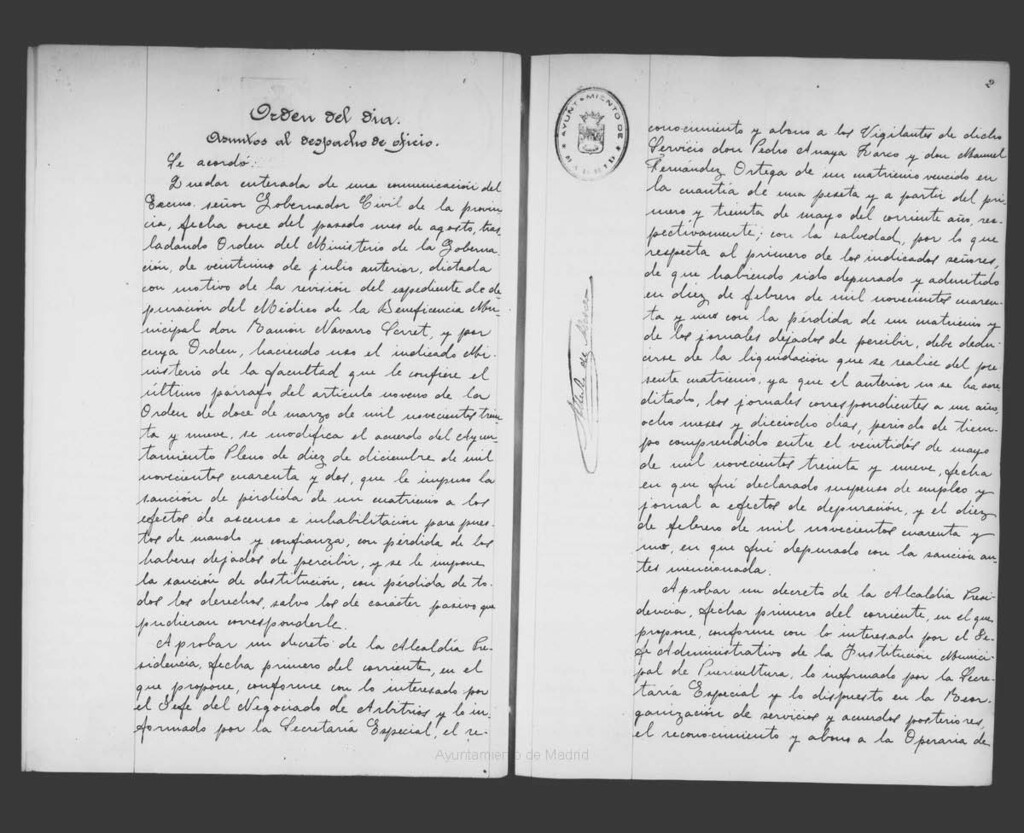 Orden del dia.
Asuntos al despacho de oficio.
Se acordó:
Quedar enterada de una comunicación del
Excmo. señor Gobernador Civil de la provin-
cia, fecha once del pasado mes de agosto, tras-
ladando Orden del Ministerio de la Goberna-
ción, de veintiuno de julio anterior, dictada
con motivo de la revisión del expediente de de-
puración del Médico de la Beneficencia Mu-
nicipal don Ramón Navarro Serret, y por
cuya Orden, haciendo uso el indicado Mi-
nisterio de la facultad que le confiere el
último párrafo del artículo noveno de la
Orden de doce de marzo de mil novecientos trein-
ta y nueve, se modifica el acuerdo del Ayun-
tamiento Pleno de diez de diciembre de mil
novecientos cuarenta y dos, que le impuso la
sanción de pérdida de un cuatrienio a los
efectos de ascenso e inhabilitación para pues-
tos de mando y confianza, con pérdida de los
haberes dejados de percibir, y se le impone
la sanción de destitución, con pérdida de to-
dos los derechos, salvo los de carácter pasivo que
pudieran corresponderle.
Aprobar un decreto de la Alcaldía Pre-
sidencia, fecha primero del corriente, en el
que propone, conforme con lo interesado por
el Jefe del Negociado de Arbitrios y lo in-
formado por la Secretaría Especial, el re-
AYUNTAMIENTO DE
MADRID
2
conocimiento y abono a los Vigilantes de dicho
Servicio don Pedro Anaya Zarco y don Manuel
Fernández Ortega de un cuatrienio vencido en
la cuantía de una peseta y a partir del pri-
mero y treinta de mayo del corriente año, res-
pectivamente; con la salvedad, por lo que
respecta al primero de los indicados señores,
de que habiendo sido depurado y admitido
en diez de febrero de mil novecientos cuaren-
ta y uno con la pérdida de un cuatrienio y
de los jornales dejados de percibir, debe dedu-
cirse de la liquidación que se realice del pre-
sente cuatrienio, ya que el anterior no se ha acre-
ditado, los jornales correspondientes a un año,
ocho meses y dieciocho días, período de tiem-
po comprendido entre el veintidós de mayo
de mil novecientos treinta y nueve, fecha
en que fué declarado suspenso de empleo y
jornal a efectos de depuración, y el diez
de febrero de mil novecientos cuarenta y
uno, en que fué depurado con la sanción an-
tes mencionada.
Aprobar un decreto de la Alcaldía Presi-
dencia, fecha primero del corriente, en el que
propone, conforme con lo interesado por el Je-
fe Administrativo de la Institución Munici-
pal de Puericultura, lo informado por la Secre-
taría Especial y lo dispuesto en la Reor-
ganización de servicios y acuerdos posteriores,
el reconocimiento y abono a la Operaria de
Ayuntamiento de Madrid